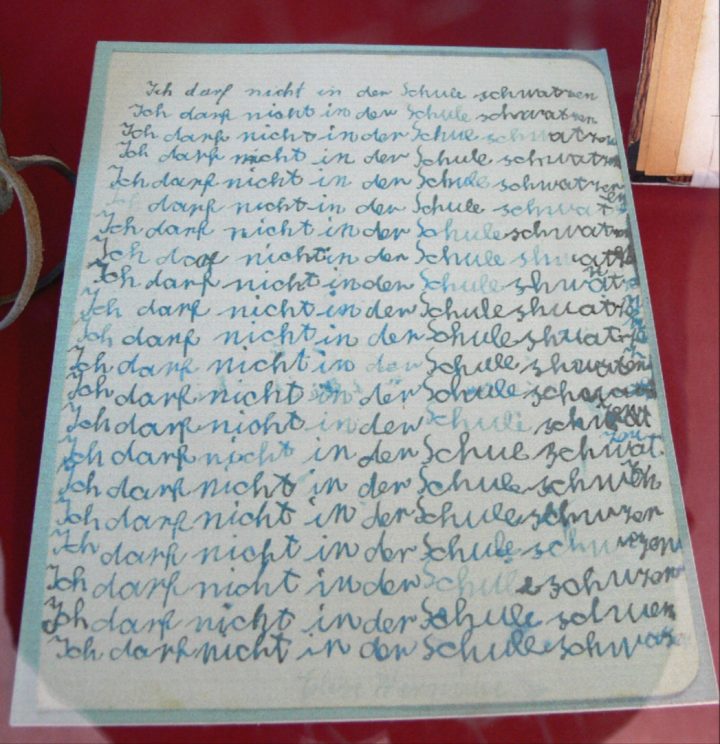 Ich darf nicht in der Schule schwatzen
Ich darf nicht in der Schule schwatzen
Ich darf nicht in der Schule schwatzen
Ich darf nicht in der Schule schwatzen
Ich darf nicht in der Schule schwatzen
Ich darf nicht in der Schule
Ich darf nicht in der Schule schwatzen
Ich darf nicht in der Schule
Ich darf nicht in der Schule shwatzen
Ich darf nicht in der Schule
Ich darf nicht in der Schule
Ich darf nicht in der Schule
Ich darf nicht in der Schule
Ich darf nicht in der Schule
Ich darf nicht in der Schule
Ich darf nicht in der Schule
Ich darf nicht in der Schule schwzen
Ich darf nicht in der Schule
Ich darf nicht in der Schule schwzen
Ich darf nicht in der Schule schwen
Ich darf nicht in der Schule